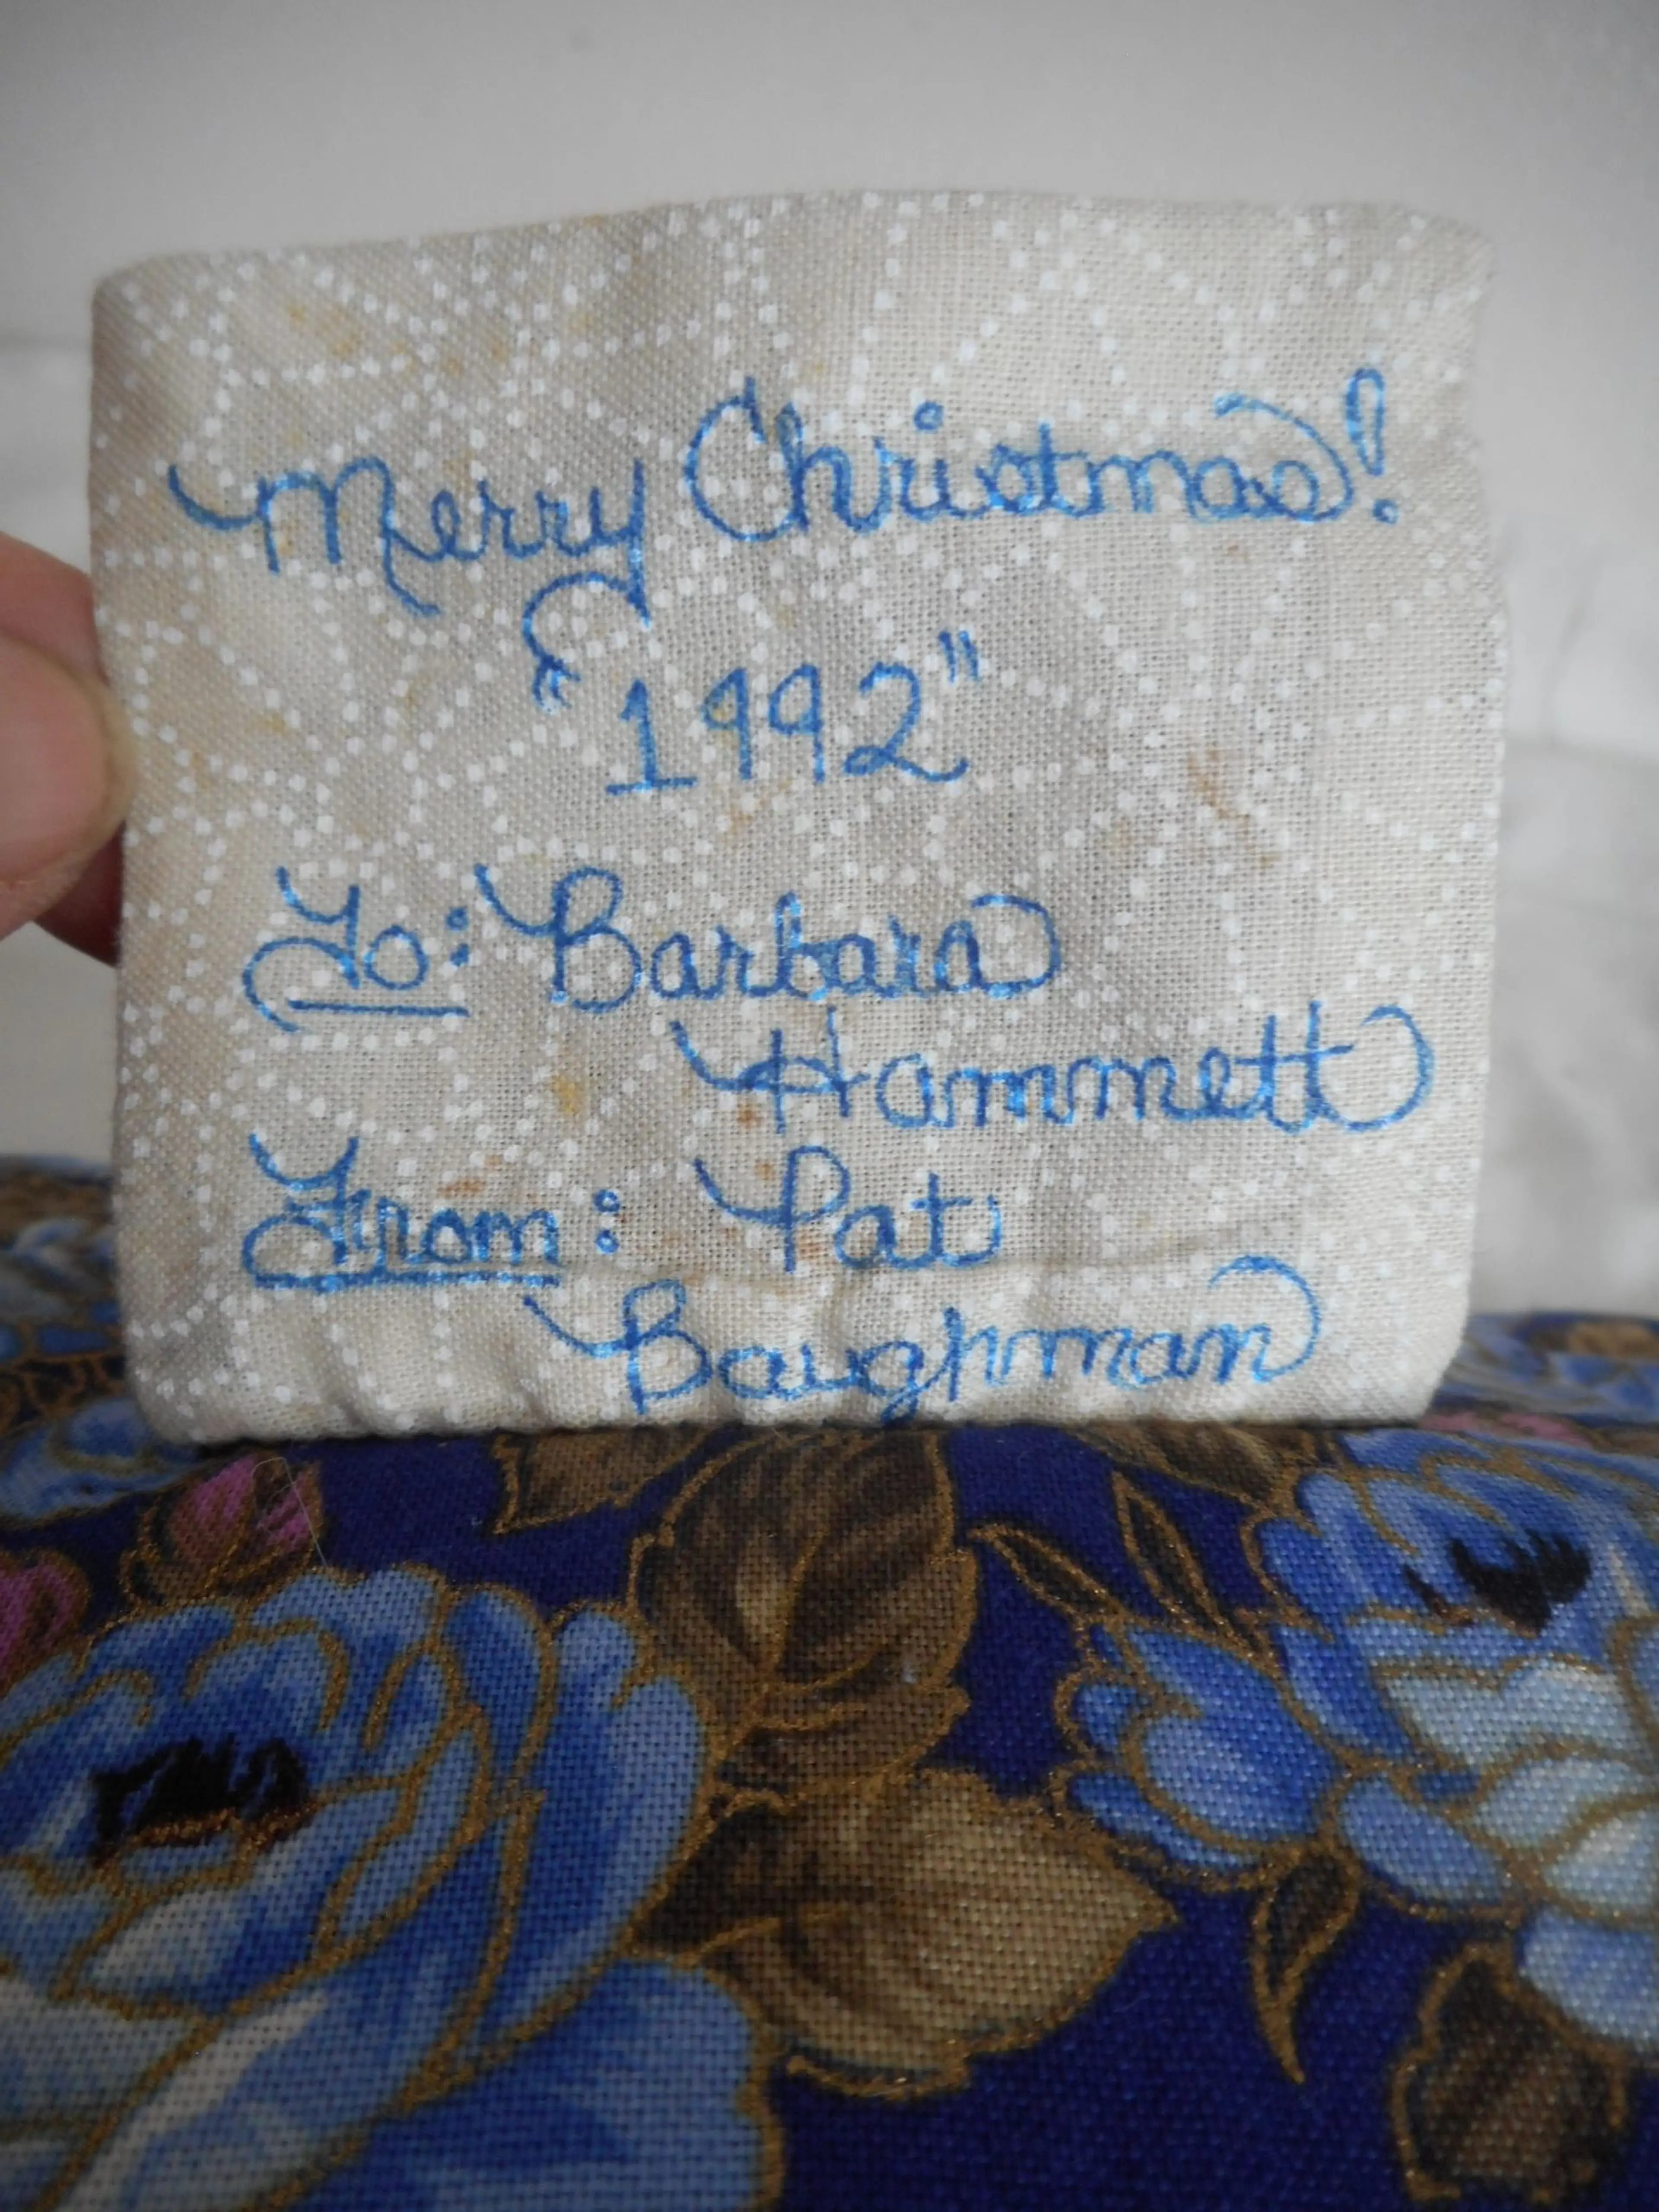 Merry Christmas!
"1992"
To: Barbara
Hammett
From: Pat
Baughman